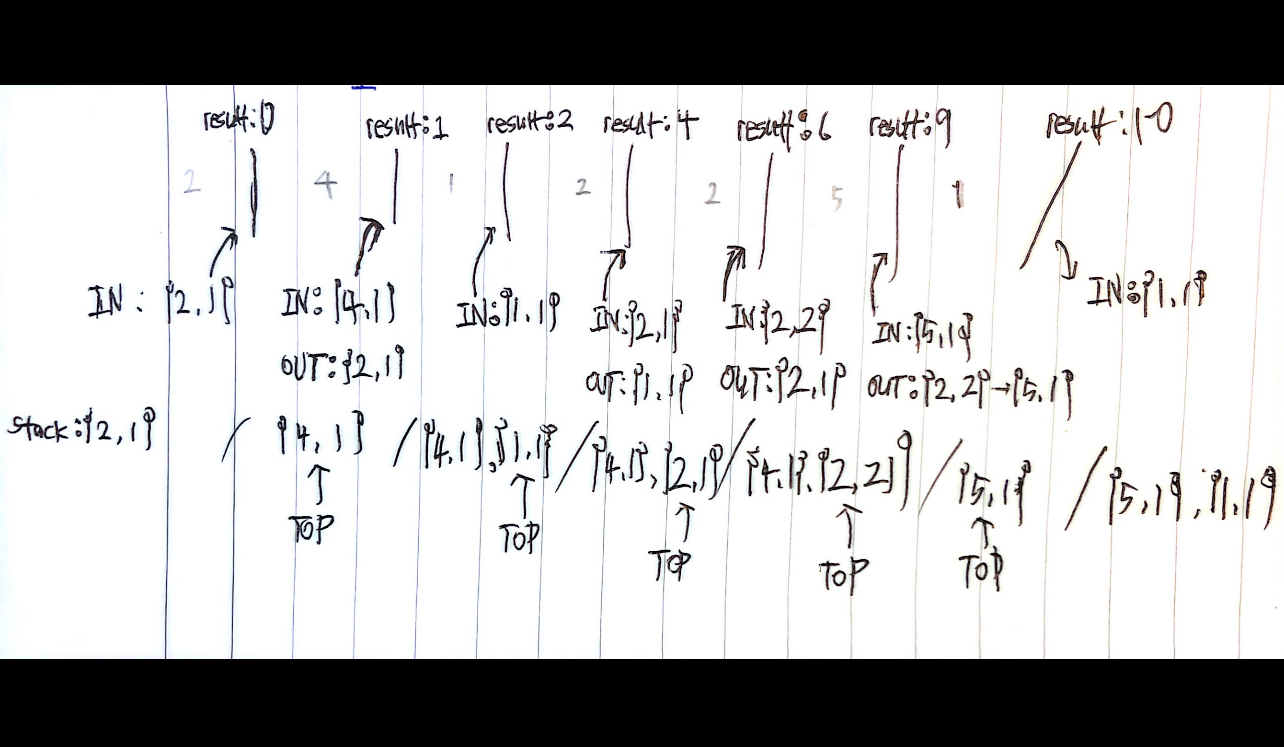 result:0 result:1 result:2 result:4 result:6 result:9 result:10
2 4 1 2 2 5 1
IN: {2,1} IN: {4,1} IN:{1,1} IN:{2,1} IN:{2,2} IN:{5,1} IN:{1,1}
OUT:{2,1} OUT:{1,1} OUT:{2,1} OUT:{2,2}→{5,1}
Stack:{2,1} / {4,1} / {4,1},{1,1} / {4,1},{2,1} / {4,1},{2,2} / {5,1} / {5,1},{1,1}
TOP TOP TOP TOP TOP